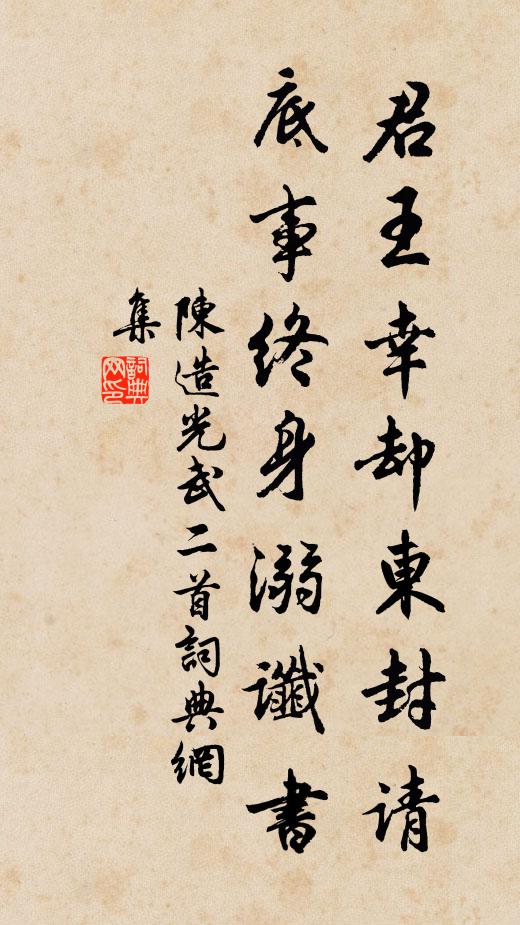 君王幸却東封请
底事終身溺讖書
陳造光武二首詞典網
集
詞典网印